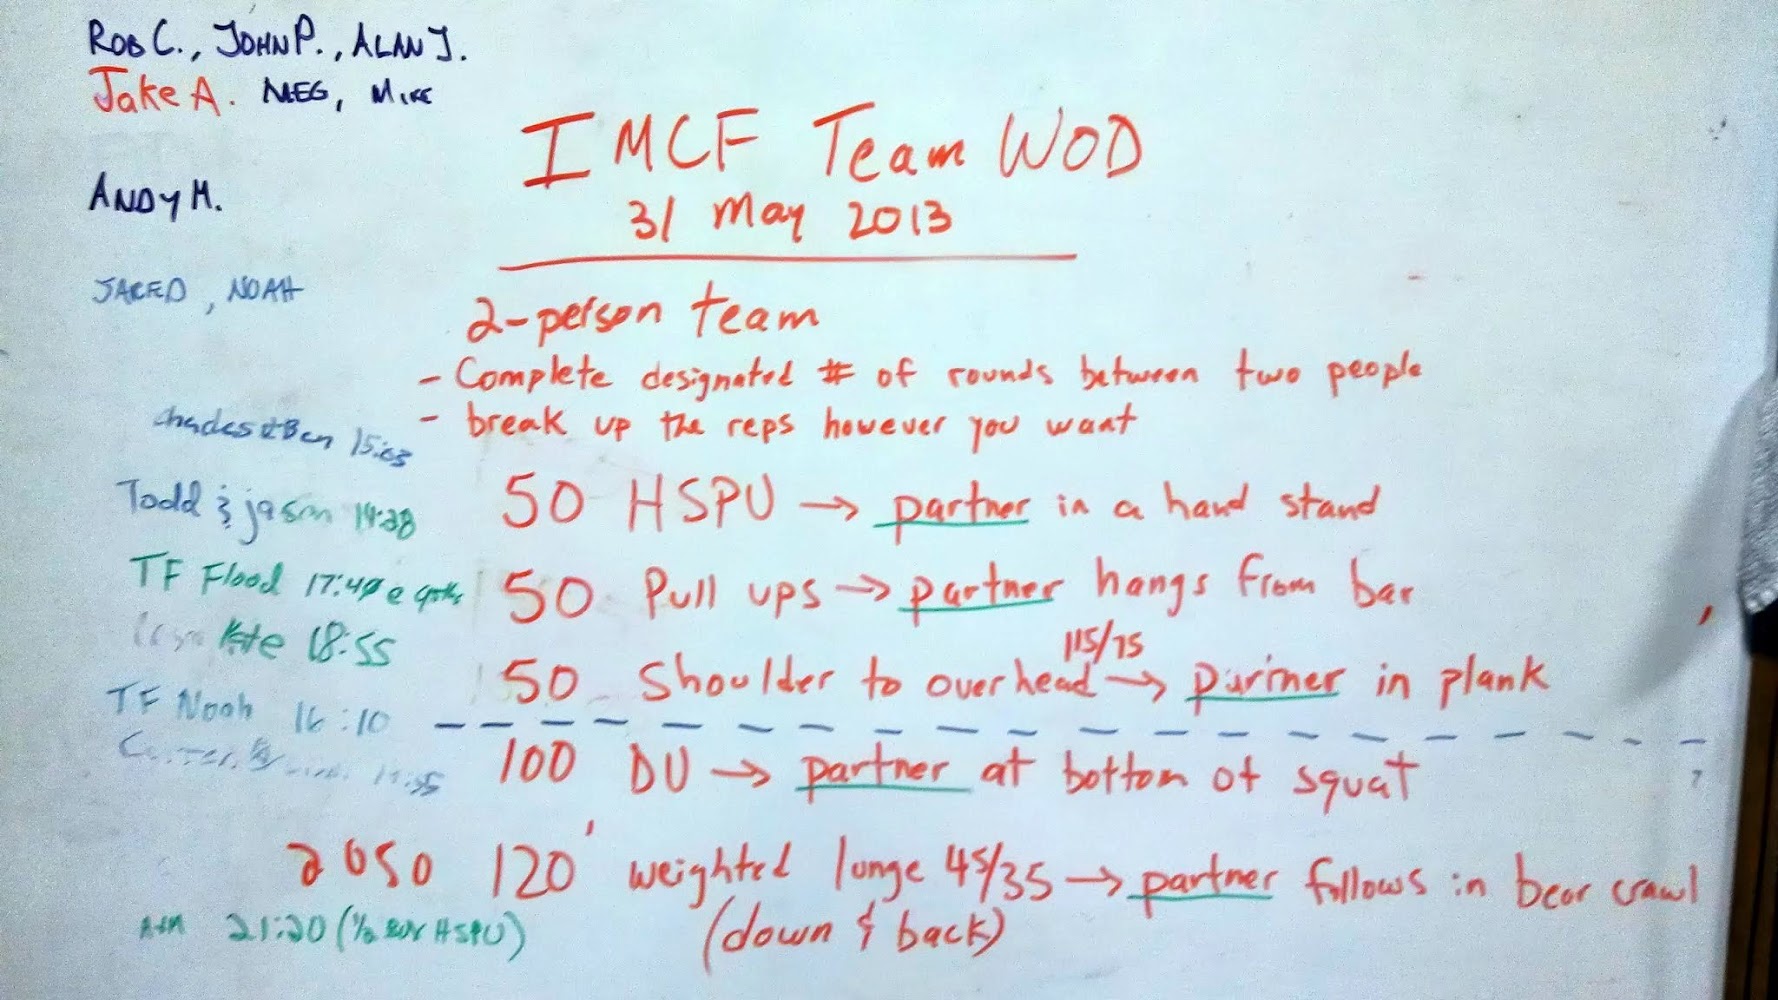 ROB C., JOHN P., ALAN J.
Jake A. MEG, MIKE
IMCF Team WOD
31 May 2013
ANDY H.
JARED, NOAH
2-person team
- Complete designated # of rounds between two people
- break up the reps however you want
Charles & Ben 15:03
Todd & jason 14:28
50 HSPU → partner in a hand stand
TF Flood 17:40
50 Pull ups → partner hangs from bar
Kate 18:55
115/75
50 Shoulder to overhead → partner in plank
TF Noah 16:10
100 DU → partner at bottom of squat
2050 120' weighted lunge 45/35 → partner follows in bear crawl
(down & back)
21:20 (1/2 HSPU)